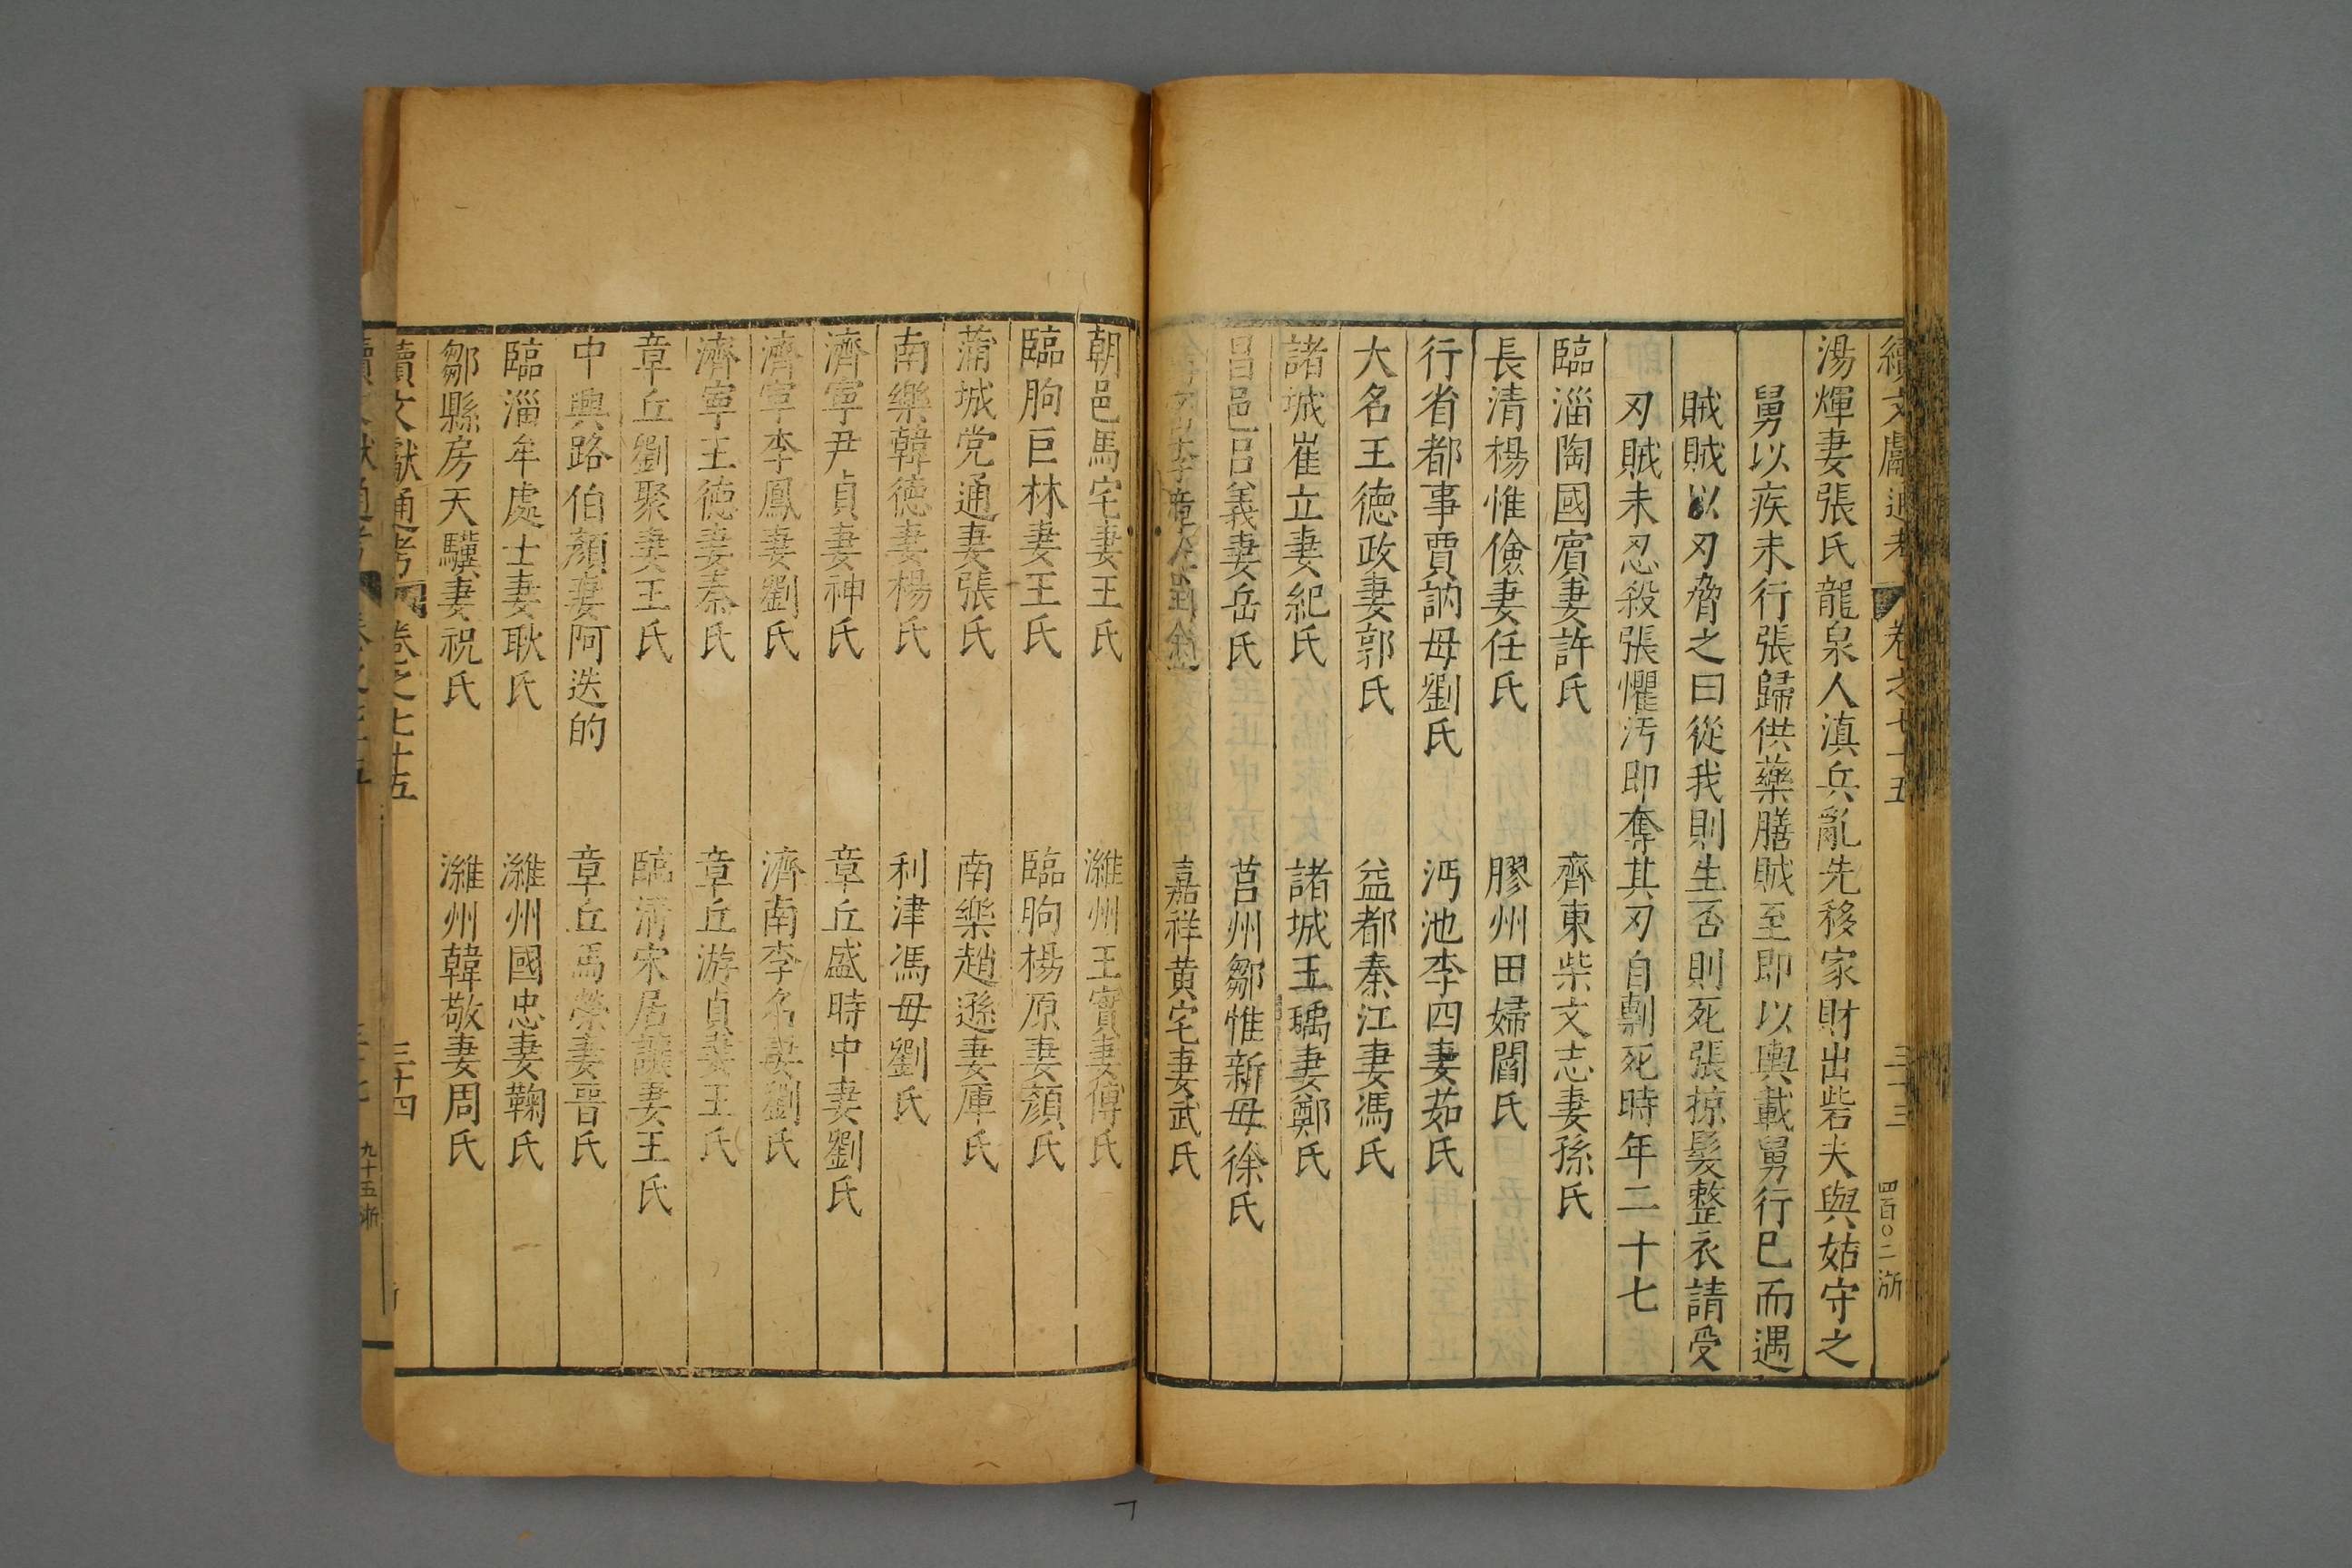 續文獻通考 卷之七十五 三十三 四百〇二 浙
湯煇妻張氏龍泉人滇兵亂先移家財出砦夫與姑守之
舅以疾未行張歸供藥膳賊至即以輿載舅行巳而遇
賊賊以刃脅之曰從我則生否則死張掠髮整衣請受
刃賊未忍殺張懼汚即奪其刃自剸死時年二十七
臨淄陶國賓妻許氏 齊東柴文志妻孫氏
長清楊惟儉妻任氏 膠州田婦閻氏
行省都事賈訥母劉氏 沔池李四妻茹氏
大名王德政妻郭氏 益都秦江妻馮氏
諸城崔立妻紀氏 諸城王瑀妻鄭氏
昌邑呂義妻岳氏 莒州鄒惟新母徐氏
嘉祥黃宅妻武氏
朝邑馬宅妻王氏 濰州王實妻傅氏
臨朐巨林妻王氏 臨朐楊原妻顏氏
蒲城党通妻張氏 南樂趙遜妻庫氏
南樂韓德妻楊氏 利津馮母劉氏
濟寧尹貞妻神氏 章丘盛時中妻劉氏
濟寧李鳳妻劉氏 濟南李名妻劉氏
濟寧王德妻秦氏 章丘游貞妻王氏
章丘劉聚妻王氏 臨清宋居讓妻王氏
中興路伯顏妻阿迭的 章丘馬榮妻晋氏
臨淄牟處士妻耿氏 濰州國忠妻鞠氏
鄒縣房天驥妻祝氏 濰州韓敬妻周氏
續文獻通考 卷之七十五 三十四
九十五 浙